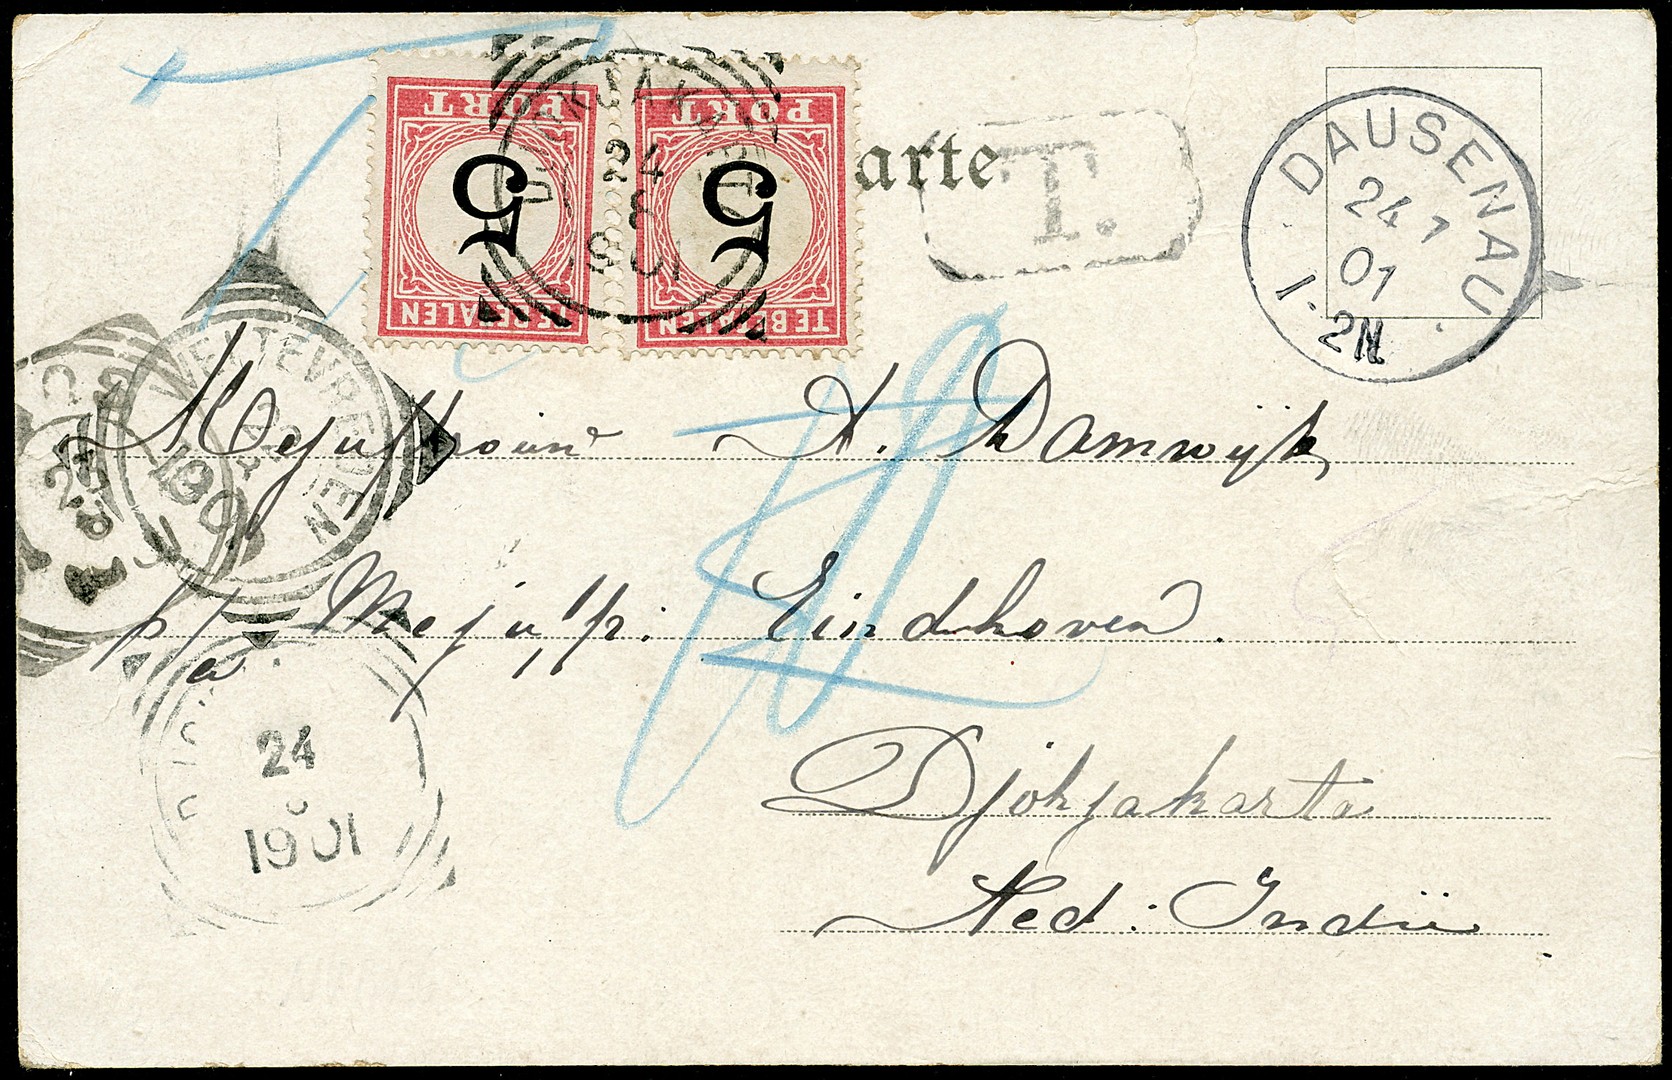 PORT PORT
5 5
TE BETALEN TE BETALEN
DJOKJAKARTA
24
8
1901
arte
T.
DAUSENAU
24 7
01
1-2N
WELTEVREDEN
190
22
8
Mejuffrouw A. Damwijk
p/a Mej. Eindhoven.
Djokjakarta
Ned. Indië
24
1901